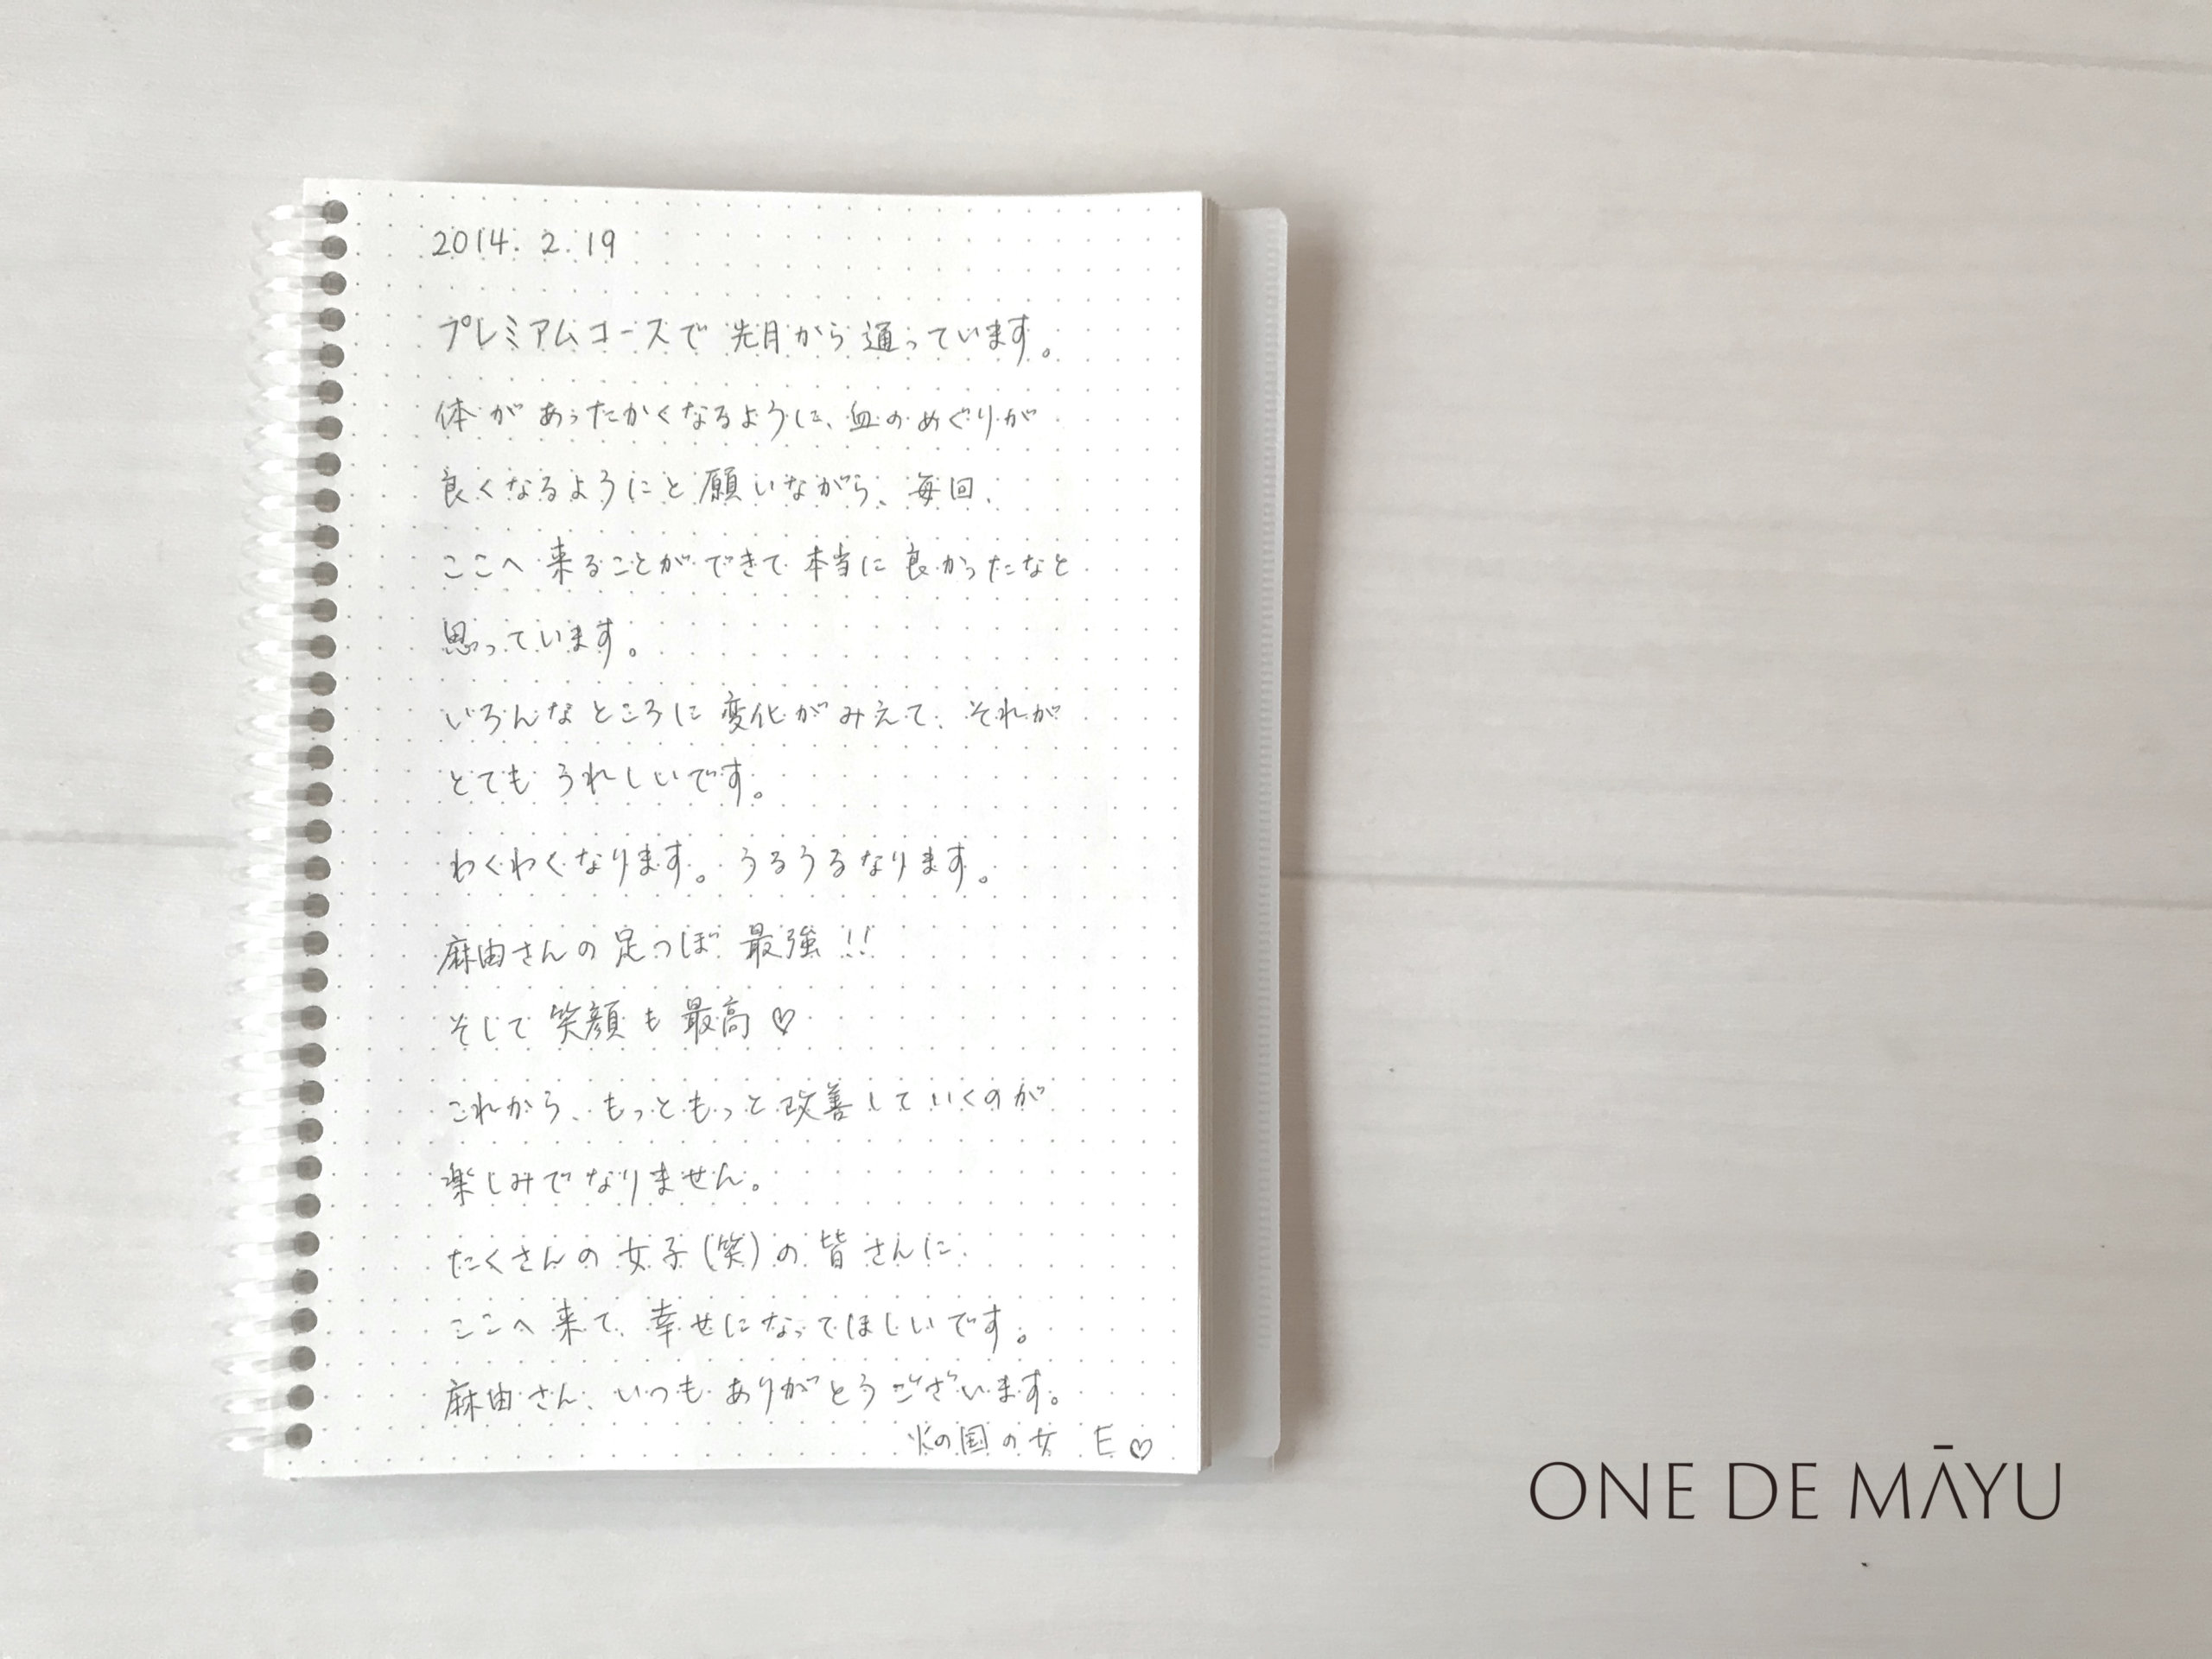 2014. 2. 19
プレミアムコースで 先月から 通っています。
体が あったかくなるように、血のめぐりが
良くなるようにと 願いながら、毎回、
ここへ 来ることができて 本当に 良かったなと
思っています。
いろんなところに 変化がみえて、それが
とても うれしいです。
わくわくなります。うるうるなります。
麻由さんの 足つぼ 最強!!
そして 笑顔も 最高♡
これから、もっともっと 改善していくのが
楽しみでなりません。
たくさんの 女子(笑)の 皆さんに
ここへ 来て、幸せになってほしいです。
麻由さん、いつも ありがとうございます。
火の国の女 E♡
ONE DE MĀYU